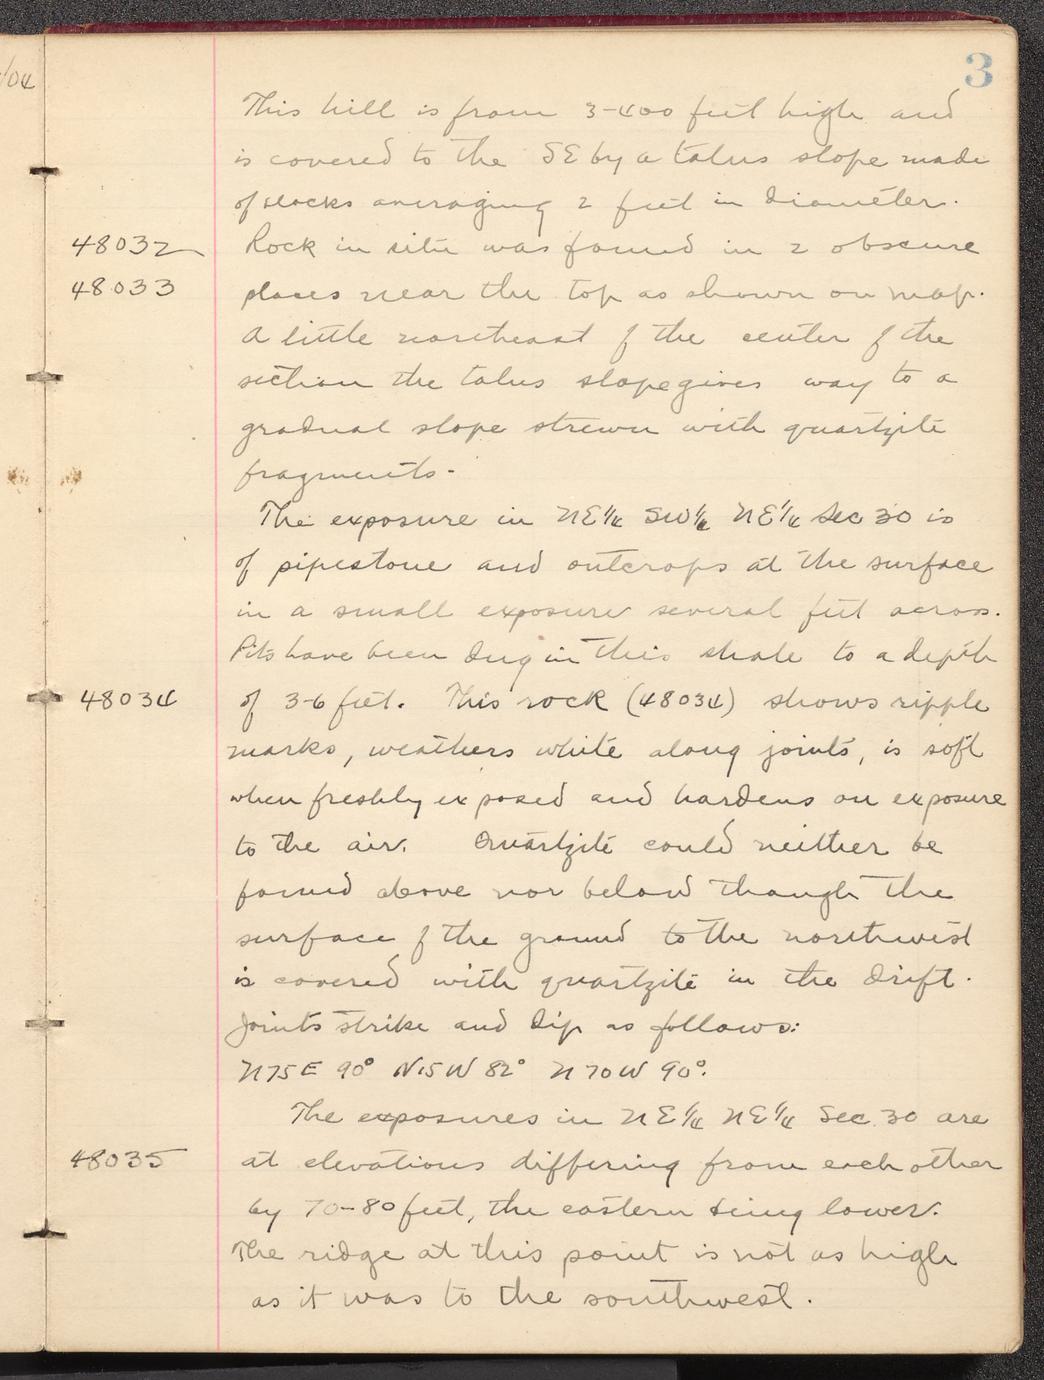 3
This hill is from 3-400 feet high and
is covered to the SE by a talus slope made
of blocks averaging 2 feet in diameter.
48032 Rock in situ was found in 2 obscure
48033 places near the top as shown on map.
A little northeast of the center of the
section the talus slope gives way to a
gradual slope strewn with quartzite
fragments.
The exposure in NE¼ SW¼ NE¼ Sec 30 is
of pipestone and outcrops at the surface
in a small exposure several feet across.
Pits have been dug in this shale to a depth
48034 of 3-6 feet. This rock (48034) shows ripple
marks, weathers white along joints, is soft
when freshly exposed and hardens on exposure
to the air. Quartzite could neither be
found above nor below though the
surface of the ground to the northwest
is covered with quartzite in the drift.
Joints strike and dip as follows:
N75E 90° N15W 82° N70W 90°.
The exposures in NE¼ NE¼ Sec. 30 are
48035 at elevations differing from each other
by 70-80 feet, the eastern being lower.
The ridge at this point is not as high
as it was to the southwest.